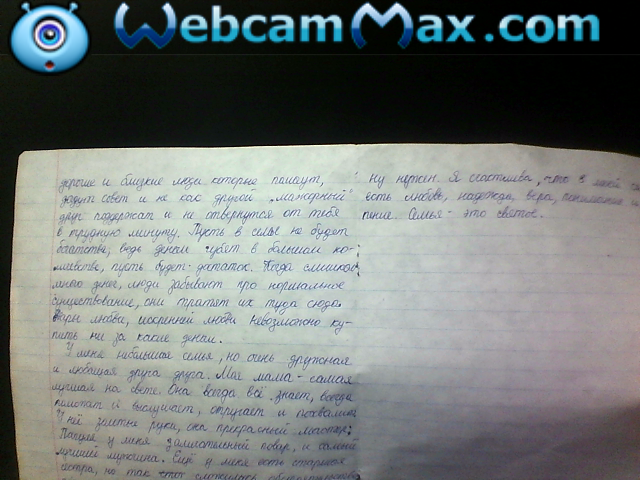 WebcamMax.com
дороше и близкие люди которые помаут,
дадут совет и не как другой "мажорный"
друг поддержат и не отвернутся от тебя
в трудную минуту. Пусть в семье не будет
богатства, ведь деньги губят в большом ко-
личестве, пусть будет достаток. Когда слишком
много денег, люди забывают про нормальное
существование, они тратят их туда сюда.
любви, искренней любви невозможно ку-
пить ни за какие деньги.
У меня небольшая семья, но очень дружная
и любящая друг друга. Моя мама - самая
лучшая на свете. Она всегда всё знает, всегда
и выслушает, отругает и похвалит
У неё золотые руки, она прекрасный мастер;
Папуля у меня замечательный повар, и самый
лучший мужчина. Ещё у меня есть старшая
сестра, но так сложились
ну нужен. Я счастлива, что в моей
есть любовь, надежда, вера, понимание и
пние. Семья - это святое.